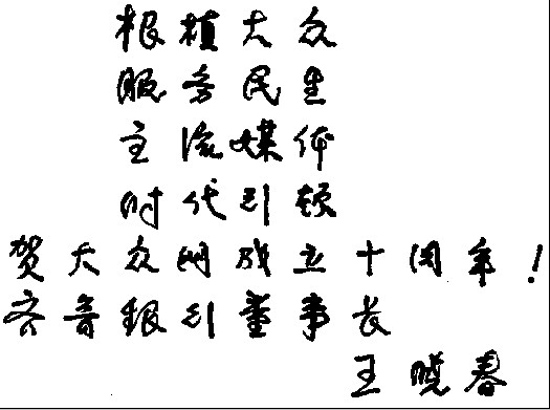 根植大众
服务民生
主流媒体
时代引领
贺大众网成立十周年！
齐商银行董事长
王晓春